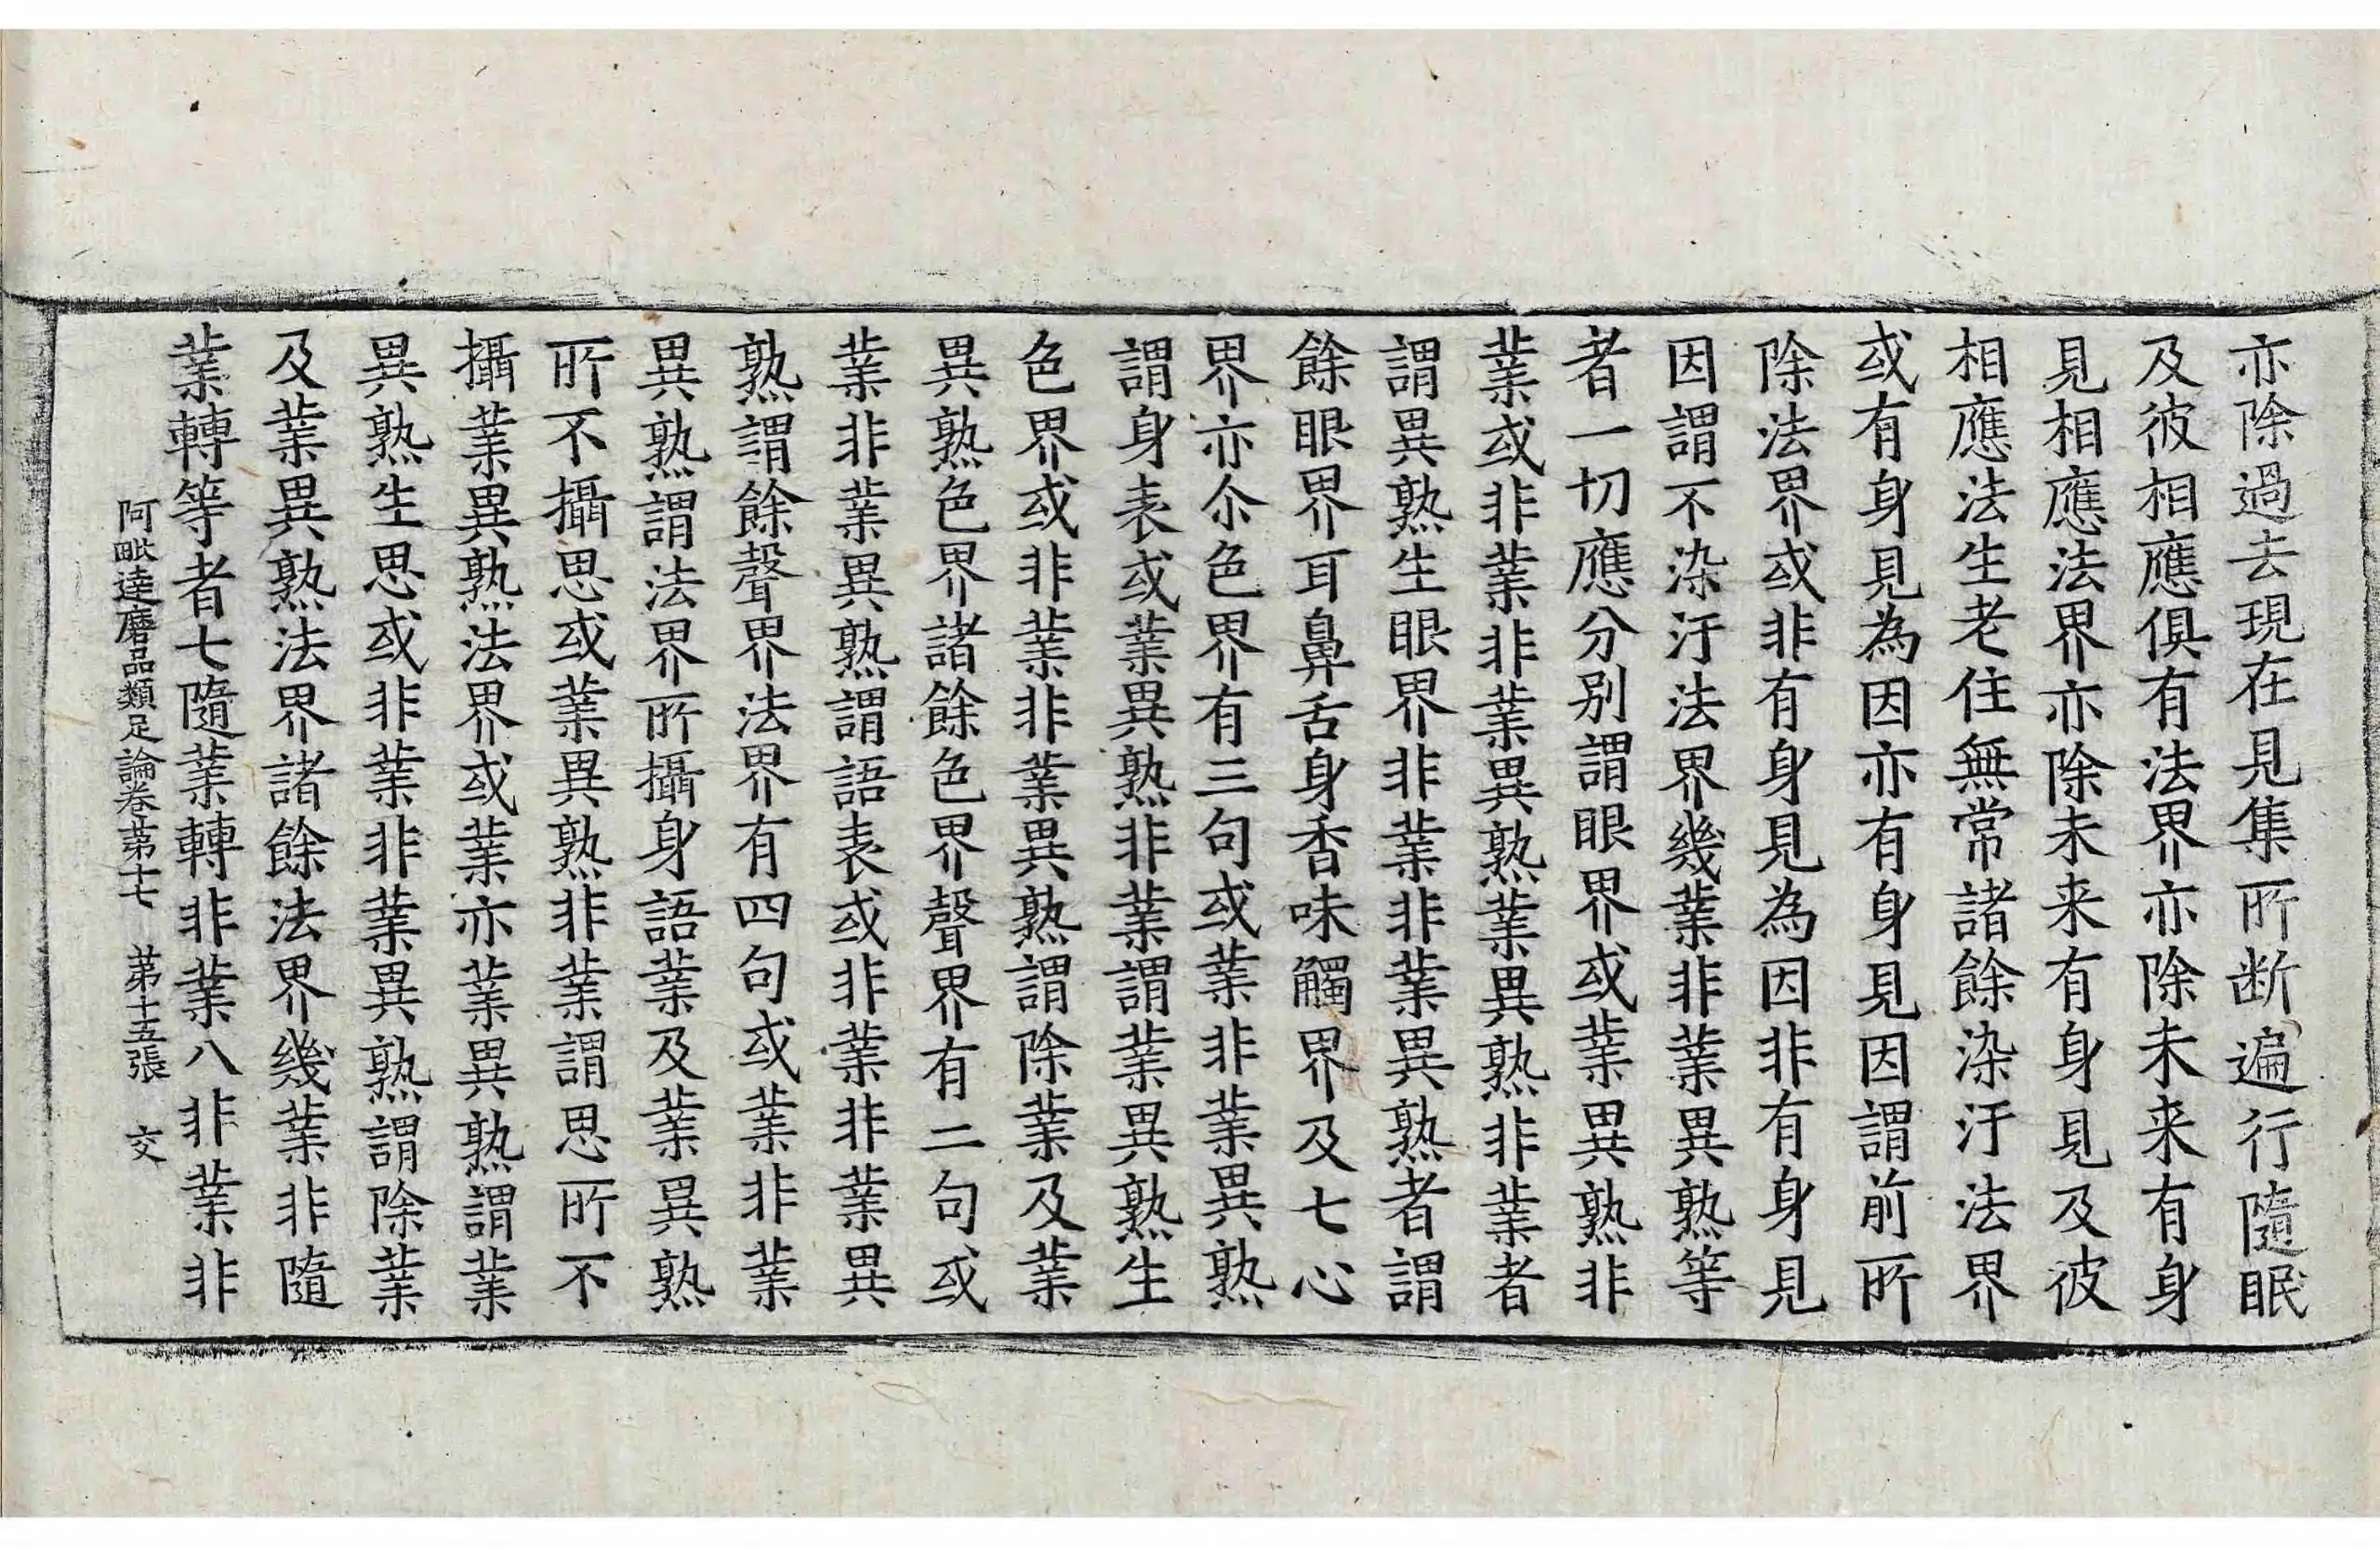 亦除過去現在見集所断遍行隨眠
及彼相應俱有法界亦除未来有身
見相應法界亦除未来有身見及彼
相應法生老住無常諸餘染汙法界
或有身見為因亦有身見因謂前所
除法界或非有身見為因非有身見
因謂不染汙法界幾業非業異熟等
者一切應分别謂眼界或業異熟非
業或非業非業異熟業異熟非業者
謂異熟生眼界非業非業異熟者謂
餘眼界耳鼻舌身香味觸界及七心
界亦尒色界有三句或業非業異熟
謂身表或業異熟非業謂業異熟生
色界或非業非業異熟謂除業及業
異熟色界諸餘色界聲界有二句或
業非業異熟謂語表或非業非業異
熟謂餘聲界法界有四句或業非業
異熟謂法界所攝身語業及業異熟
所不攝思或業異熟非業謂思所不
攝業異熟法界或業亦業異熟謂業
異熟生思或非業非業異熟謂除業
及業異熟法界諸餘法界幾業非隨
業轉等者七隨業轉非業八非業非
阿毗達磨品類足論卷苐十七　苐十五張　交